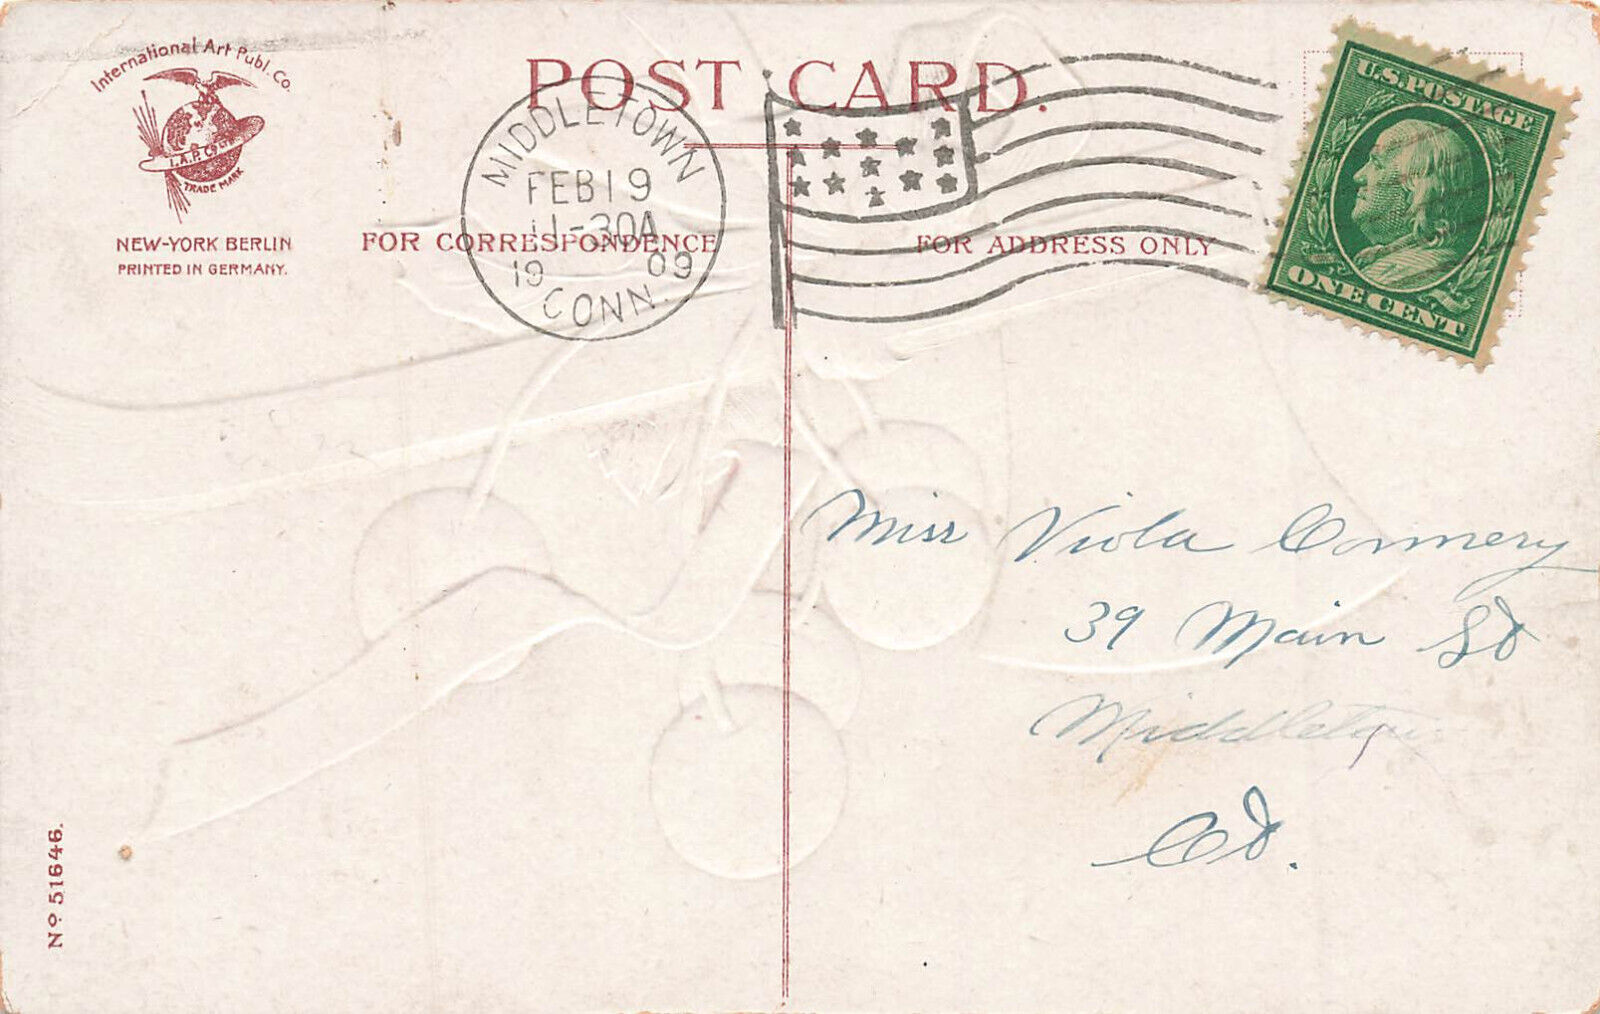 International Art Publ. Co.
I.A.P. Co. Ltd.
TRADE MARK
NEW-YORK BERLIN
PRINTED IN GERMANY.
POST CARD.
MIDDLETOWN
FEB 19
11-30A
19 09
CONN.
FOR CORRESPONDENCE
FOR ADDRESS ONLY
U.S. POSTAGE
ONE CENT
Miss Viola Conmery
39 Main St
Middletown
Ct.
Nº 51646.